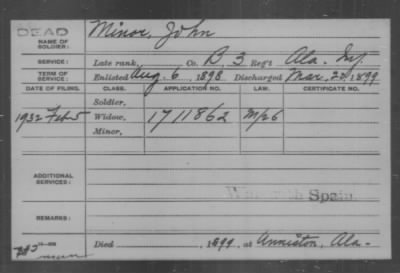 DEAD
NAME OF SOLDIER: Minor, John
SERVICE: Late rank, Co. B 3 Reg't Ala. Inf.
TERM OF SERVICE: Enlisted Aug. 6, 1898 Discharged Mar. 20, 1899
DATE OF FILING. CLASS. APPLICATION NO. LAW. CERTIFICATE NO.
Soldier.
1932 Feb 5 Widow. 1711862
Minor.
ADDITIONAL SERVICES:
War with Spain.
REMARKS:
Died , 1899, at Anniston, Ala-